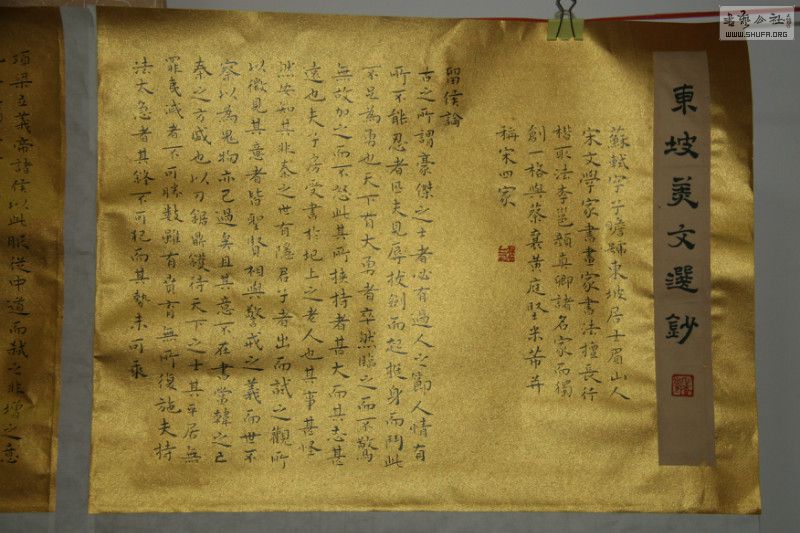 東坡美文選鈔
蘇軾字子瞻號東坡居士眉山人
宋文學家書畫家書法擅長行
楷取法李邕顏真卿諸名家而獨
創一格與蔡襄黃庭堅米芾並
稱宋四家
留侯論
古之所謂豪傑之士者必有過人之節人情有
所不能忍者匹夫見辱拔劍而起挺身而鬥此
不足為勇也天下有大勇者卒然臨之而不驚
無故加之而不怒此其所挾持者甚大而其志甚
遠也夫子房受書於圯上之老人也其事甚怪
然安知其非秦之世有隱君子者出而試之觀所
以微見其意者皆聖賢相與警戒之義而世不
察以為鬼物亦已過矣且其意不在書當韓之亡
秦之方盛也以刀鋸鼎鑊待天下之士其平居無
罪夷滅者不可勝數雖有賁育無所復施夫持
法太急者其鋒不可犯而其勢未可乘
項梁立義帝諸侯以此服從中道而弒之非增之意
書藝公社
WWW.SHUFA.ORG